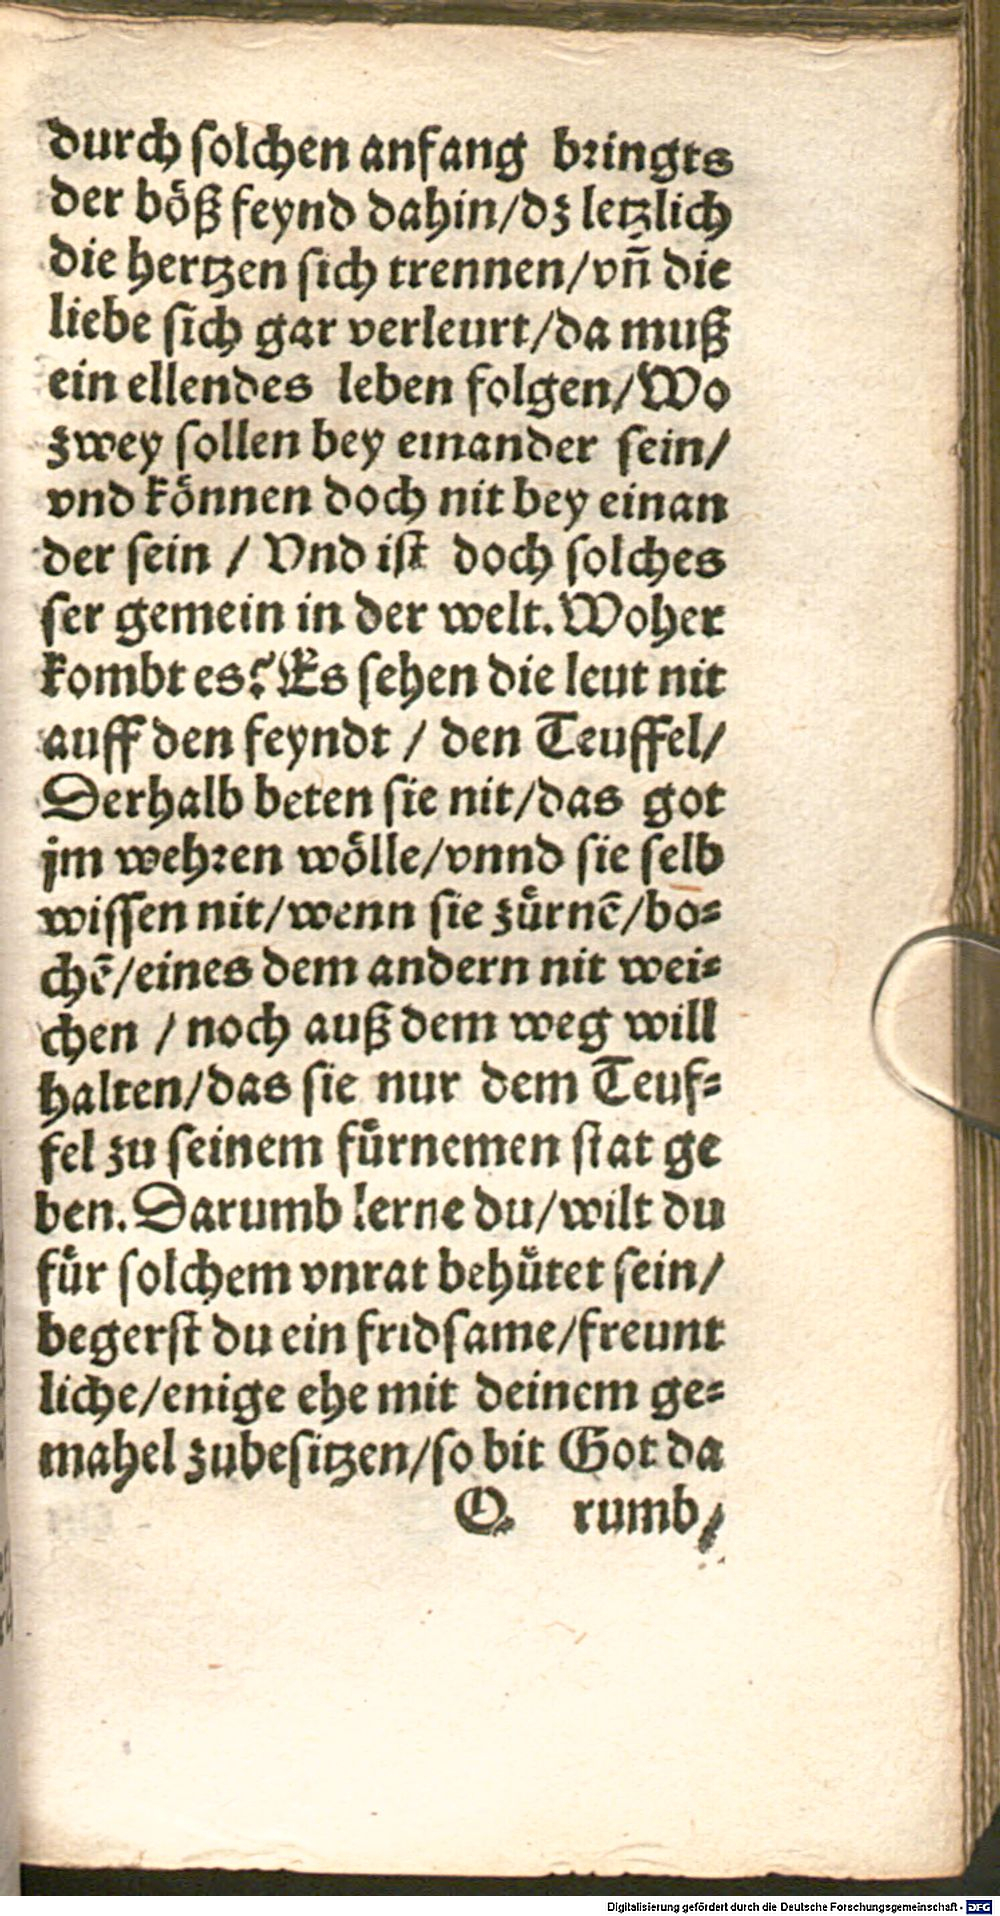 durch ſolchen anfang bꝛingts
der boͤß feynd dahin/dz letzlich
die hertzen ſich trennen/vn̄ die
liebe ſich gar verleurt/da muß
ein ellendes leben folgen/Wo
zwey ſollen bey einander ſein/
vnd koͤnnen doch nit bey einan
der ſein / Vnd iſt doch ſolches
ſer gemein in der welt. Woher
kombt es? Es ſehen die leut nit
auff den feyndt / den Teuffel/
Derhalb beten ſie nit/das got
jm wehꝛen woͤlle/vnnd ſie ſelb
wiſſen nit/wenn ſie zuͤrnē/bo⸗
chē/eines dem andern nit wei⸗
chen / noch auß dem weg will
halten/das ſie nur dem Teuf⸗
fel zu ſeinem fuͤrnemen ſtat ge
ben. Darumb lerne du/wilt du
fuͤr ſolchem vnrat behuͤtet ſein/
begerſt du ein fridſame/freunt
liche/enige ehe mit deinem ge⸗
mahel zubeſitzen/ſo bit Got da
O. rumb/
Digitalisierung gefördert durch die Deutsche Forschungsgemeinschaft - DFG